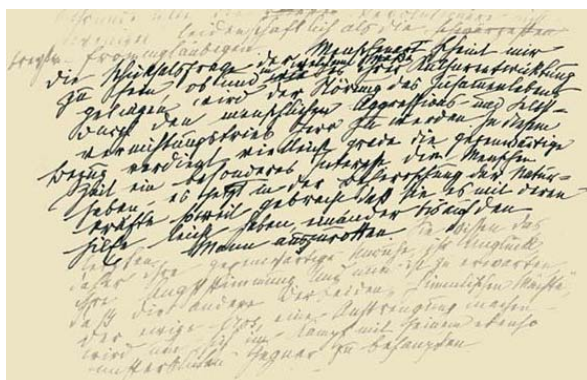 leidenschaftlich als die
Die Schiksalsfrage der Menschenart scheint mir
zu sein, ob und in welchem Maße ihrer Kulturentwicklung
gelingen wird der Störung des Zusammenlebens
durch den menschlichen Aggressions- und Selbst-
vernichtungstrieb Herr zu werden. In diesem
Bezug verdient vielleicht grade die gegenwärtige
Zeit ein besonderes Interesse. Die Menschen
haben es jetzt in der Beherrschung der Natur-
kräfte soweit gebracht daß sie es mit deren
Hilfe leicht haben, einander bis auf den
letzten Mann auszurotten. Sie wissen das
daher ihre gegenwärtige Unruhe, ihr Unglück
ihre Angststimmung. Und nun ist zu erwarten,
daß die andere der beiden „himmlischen Mächte",
der ewige Eros, eine Anstrengung machen
wird, um sich im Kampf mit seinem ebenso
unsterblichen Gegner zu behaupten